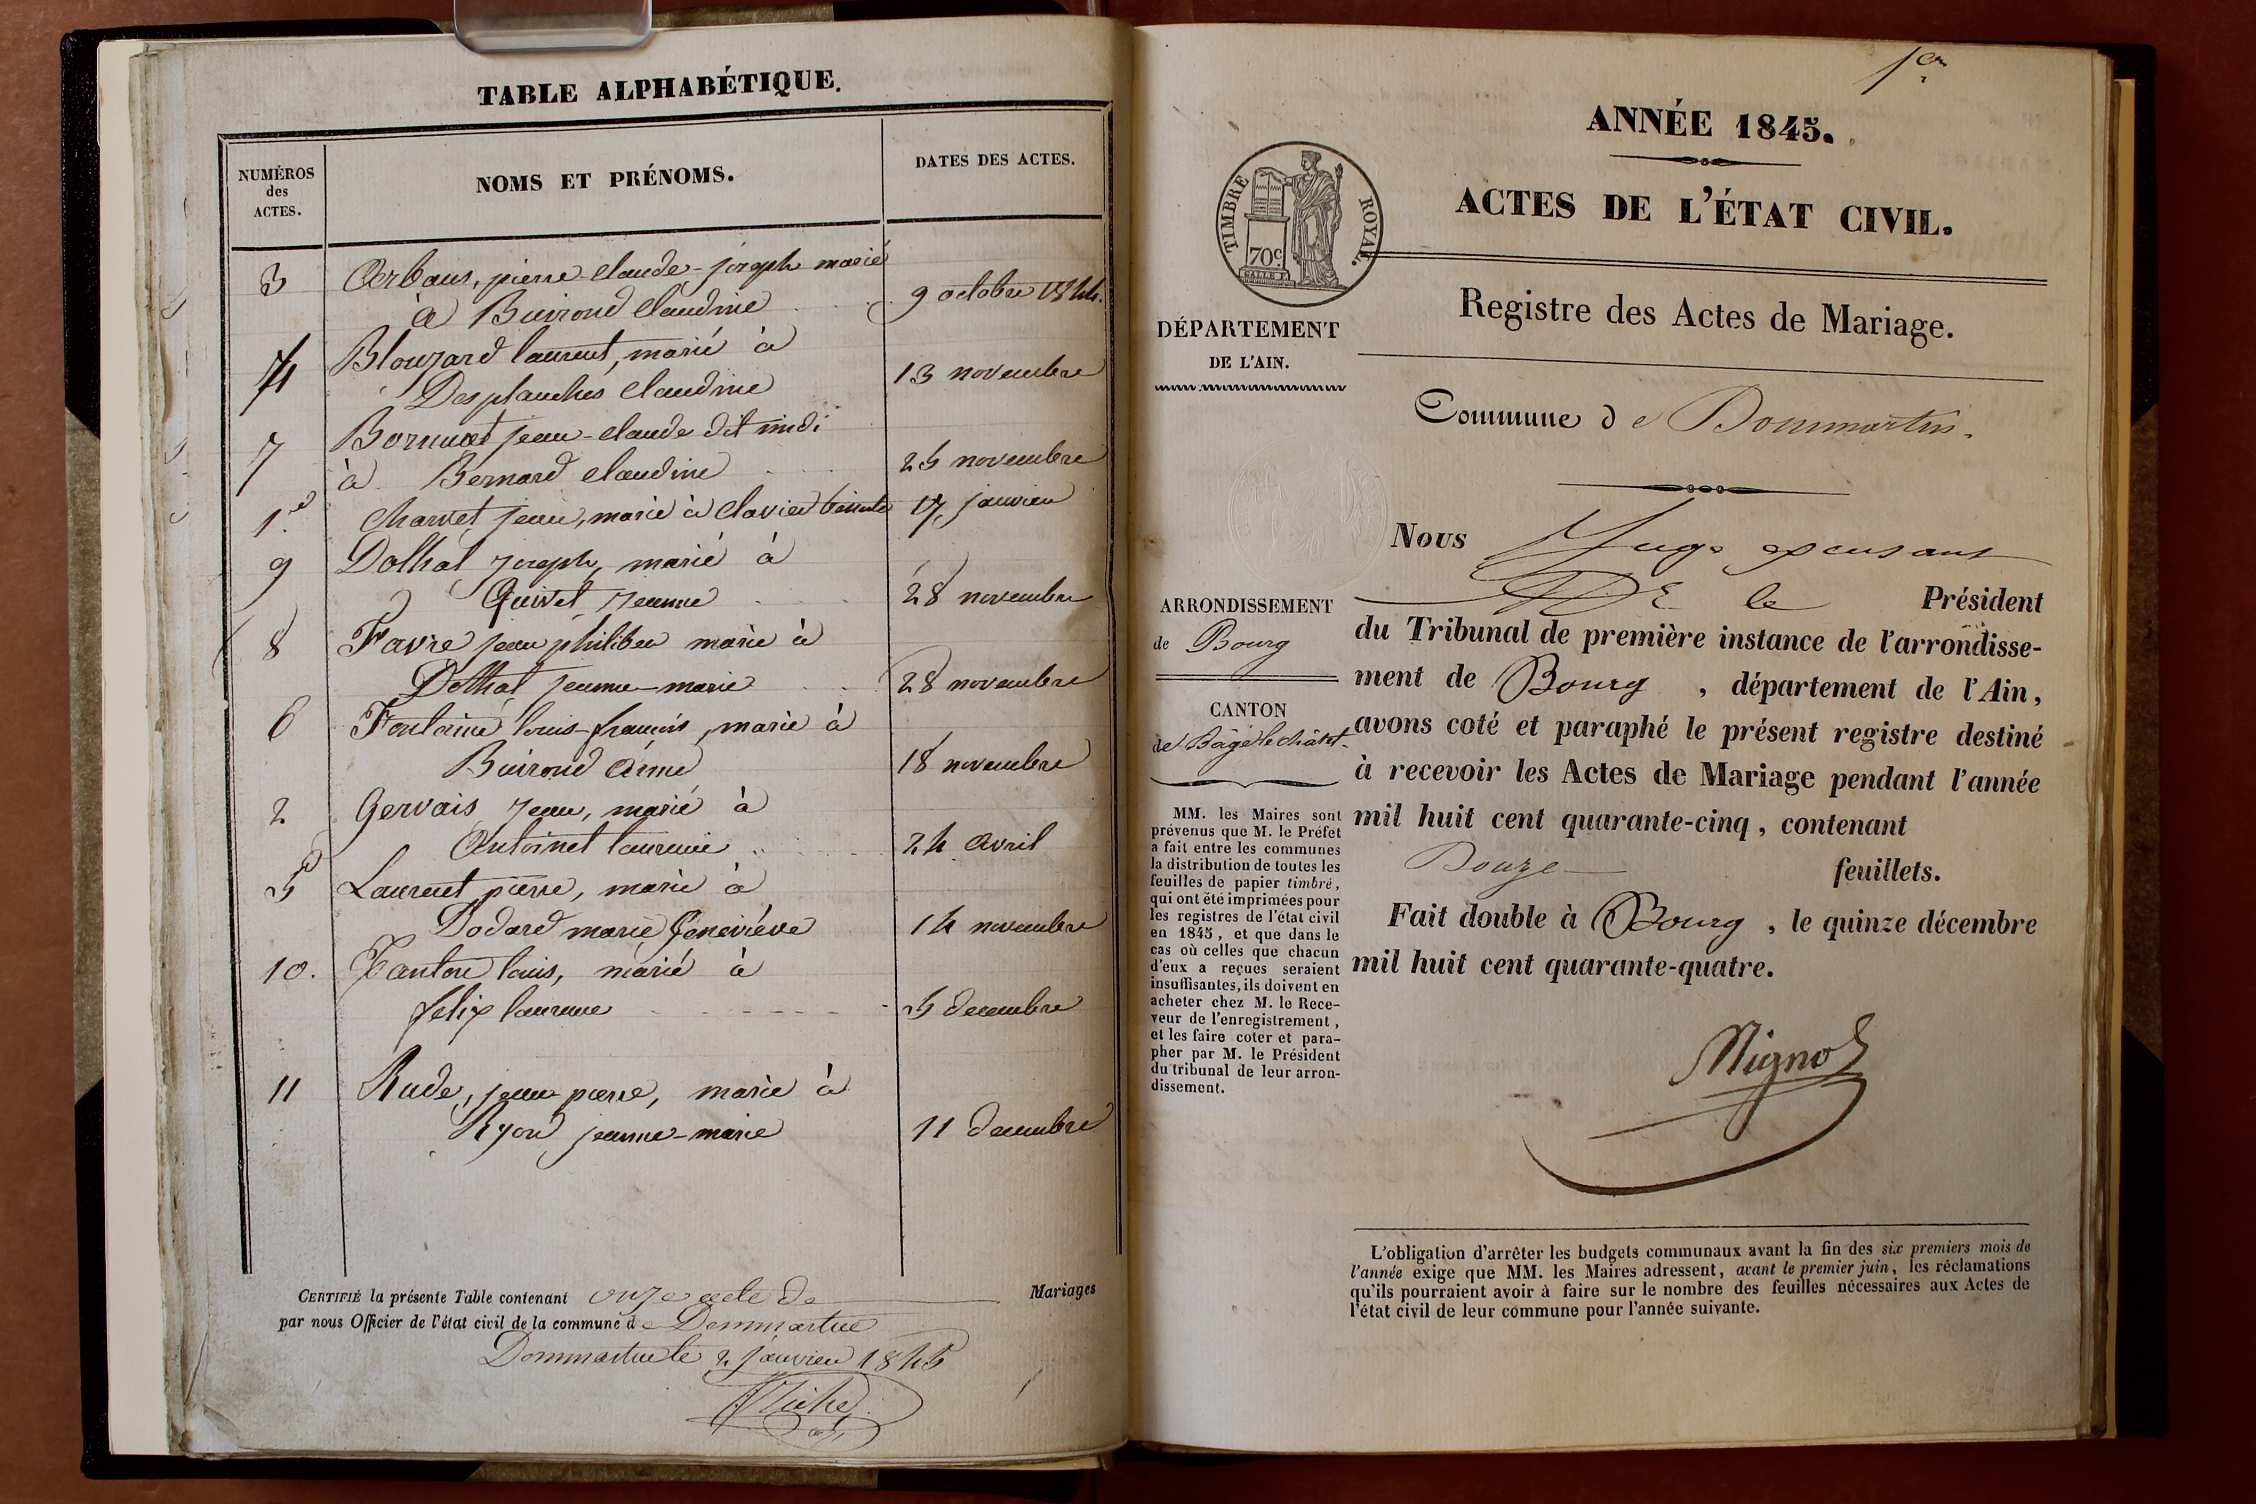 TABLE ALPHABÉTIQUE.
NUMÉROS
des
ACTES.
NOMS ET PRÉNOMS.
DATES DES ACTES.
3 pierre claude-joseph marié
à Buiroud Claudine 9 octobre 1844.
4 Blouzard laurent, marié à
Desplanches Claudine 13 novembre
7 jean-claude dit midi
à Bernard claudine 25 novembre
1.er Charvet jean, marié à Clavier 17 janvier
9 Dolhat joseph, marié à
Quivet Jeanne 28 novembre
8 Favre jean philiber marié à
Dolhat jeanne-marie 28 novembre
6 Fontaine louis-françois, marié à
Buiroud Anne 18 novembre
2 Gervais Jean, marié à
Antoinet laurence 24 avril
5 Laurent pierre, marié à
Dodard marie Geneviéve 14 novembre
10. louis, marié à
felix laurence 5 decembre
11 Rude, jean pierre, marié à
Ryon jeanne-marie 11 decembre
CERTIFIÉ la présente Table contenant onze acte de Mariages
par nous Officier de l'état civil de la commune de Dommartin
Dommartin le 2 janvier 1845
1er
ANNÉE 1845.
ACTES DE L'ÉTAT CIVIL.
TIMBRE ROYAL.
70c.
Registre des Actes de Mariage.
DÉPARTEMENT
DE L'AIN.
Commune de Dommartin.
Nous Juge
le Président
du Tribunal de première instance de l'arrondisse-
ment de Bourg, département de l'Ain,
avons coté et paraphé le présent registre destiné
à recevoir les Actes de Mariage pendant l'année
mil huit cent quarante-cinq, contenant
Douze feuillets.
Fait double à Bourg, le quinze décembre
mil huit cent quarante-quatre.
ARRONDISSEMENT
de Bourg
CANTON
de Bâgé le châtel
MM. les Maires sont
prévenus que M. le Préfet
a fait entre les communes
la distribution de toutes les
feuilles de papier timbré,
qui ont été imprimées pour
les registres de l'état civil
en 1845, et que dans le
cas où celles que chacun
d'eux a reçues seraient
insuffisantes, ils doivent en
acheter chez M. le Rece-
veur de l'enregistrement,
et les faire coter et para-
pher par M. le Président
du tribunal de leur arron-
dissement.
L'obligation d'arrêter les budgets communaux avant la fin des six premiers mois de
l'année exige que MM. les Maires adressent, avant le premier juin, les réclamations
qu'ils pourraient avoir à faire sur le nombre des feuilles nécessaires aux Actes de
l'état civil de leur commune pour l'année suivante.